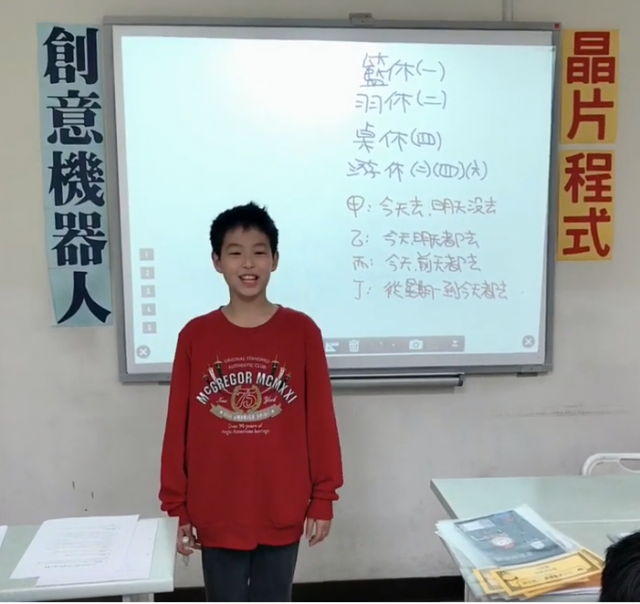 創意機器人
籃休(一)
羽休(二)
桌休(四)
游休(二)(四)(六)
甲：今天去,明天沒去
乙：今天明天都去
丙：今天,前天都去
丁：從星期一到今天都去
晶片程式
1
2
3
4
5
ORIGINAL STANDARD
AUTOMOTIVE CLUB
MCGREGOR MCMXXI
New York
75